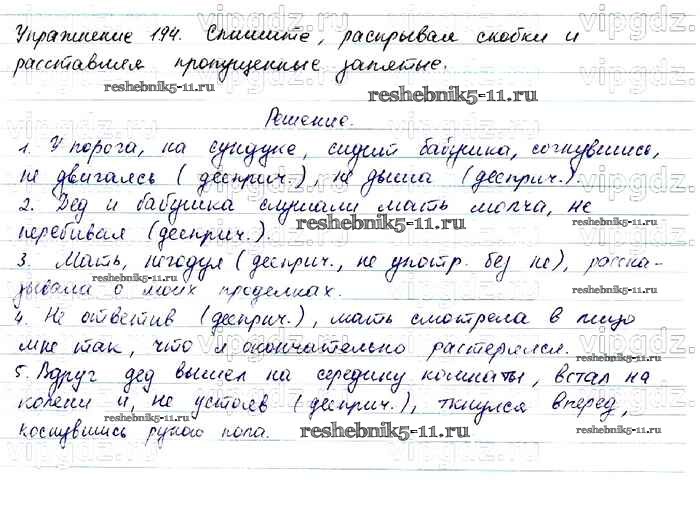 Упражнение 194. Спишите, раскрывая скобки и
расставляя пропущенные запятые.
reshebnik5-11.ru
reshebnik5-11.ru
Решение.
1. У порога, на сундуке, сидит бабушка, согнувшись,
не двигаясь (дееприч.), не дыша (дееприч.).
2. Дед и бабушка слушали мать молча, не
reshebnik5-11.ru
перебивая (дееприч.).
3. Мать, негодуя (дееприч., не употр. без не), расска-
reshebnik5-11.ru
зывала о моих проделках.
4. Не ответив (дееприч.), мать смотрела в лицо
мне так, что я окончательно растерялся.
reshebnik5-11.ru
5. Вдруг дед вышел на середину комнаты, встал на
колени и, не устояв (дееприч.), ткнулся вперед,
reshebnik5-11.ru
коснувшись рукою пола.
reshebnik5-11.ru